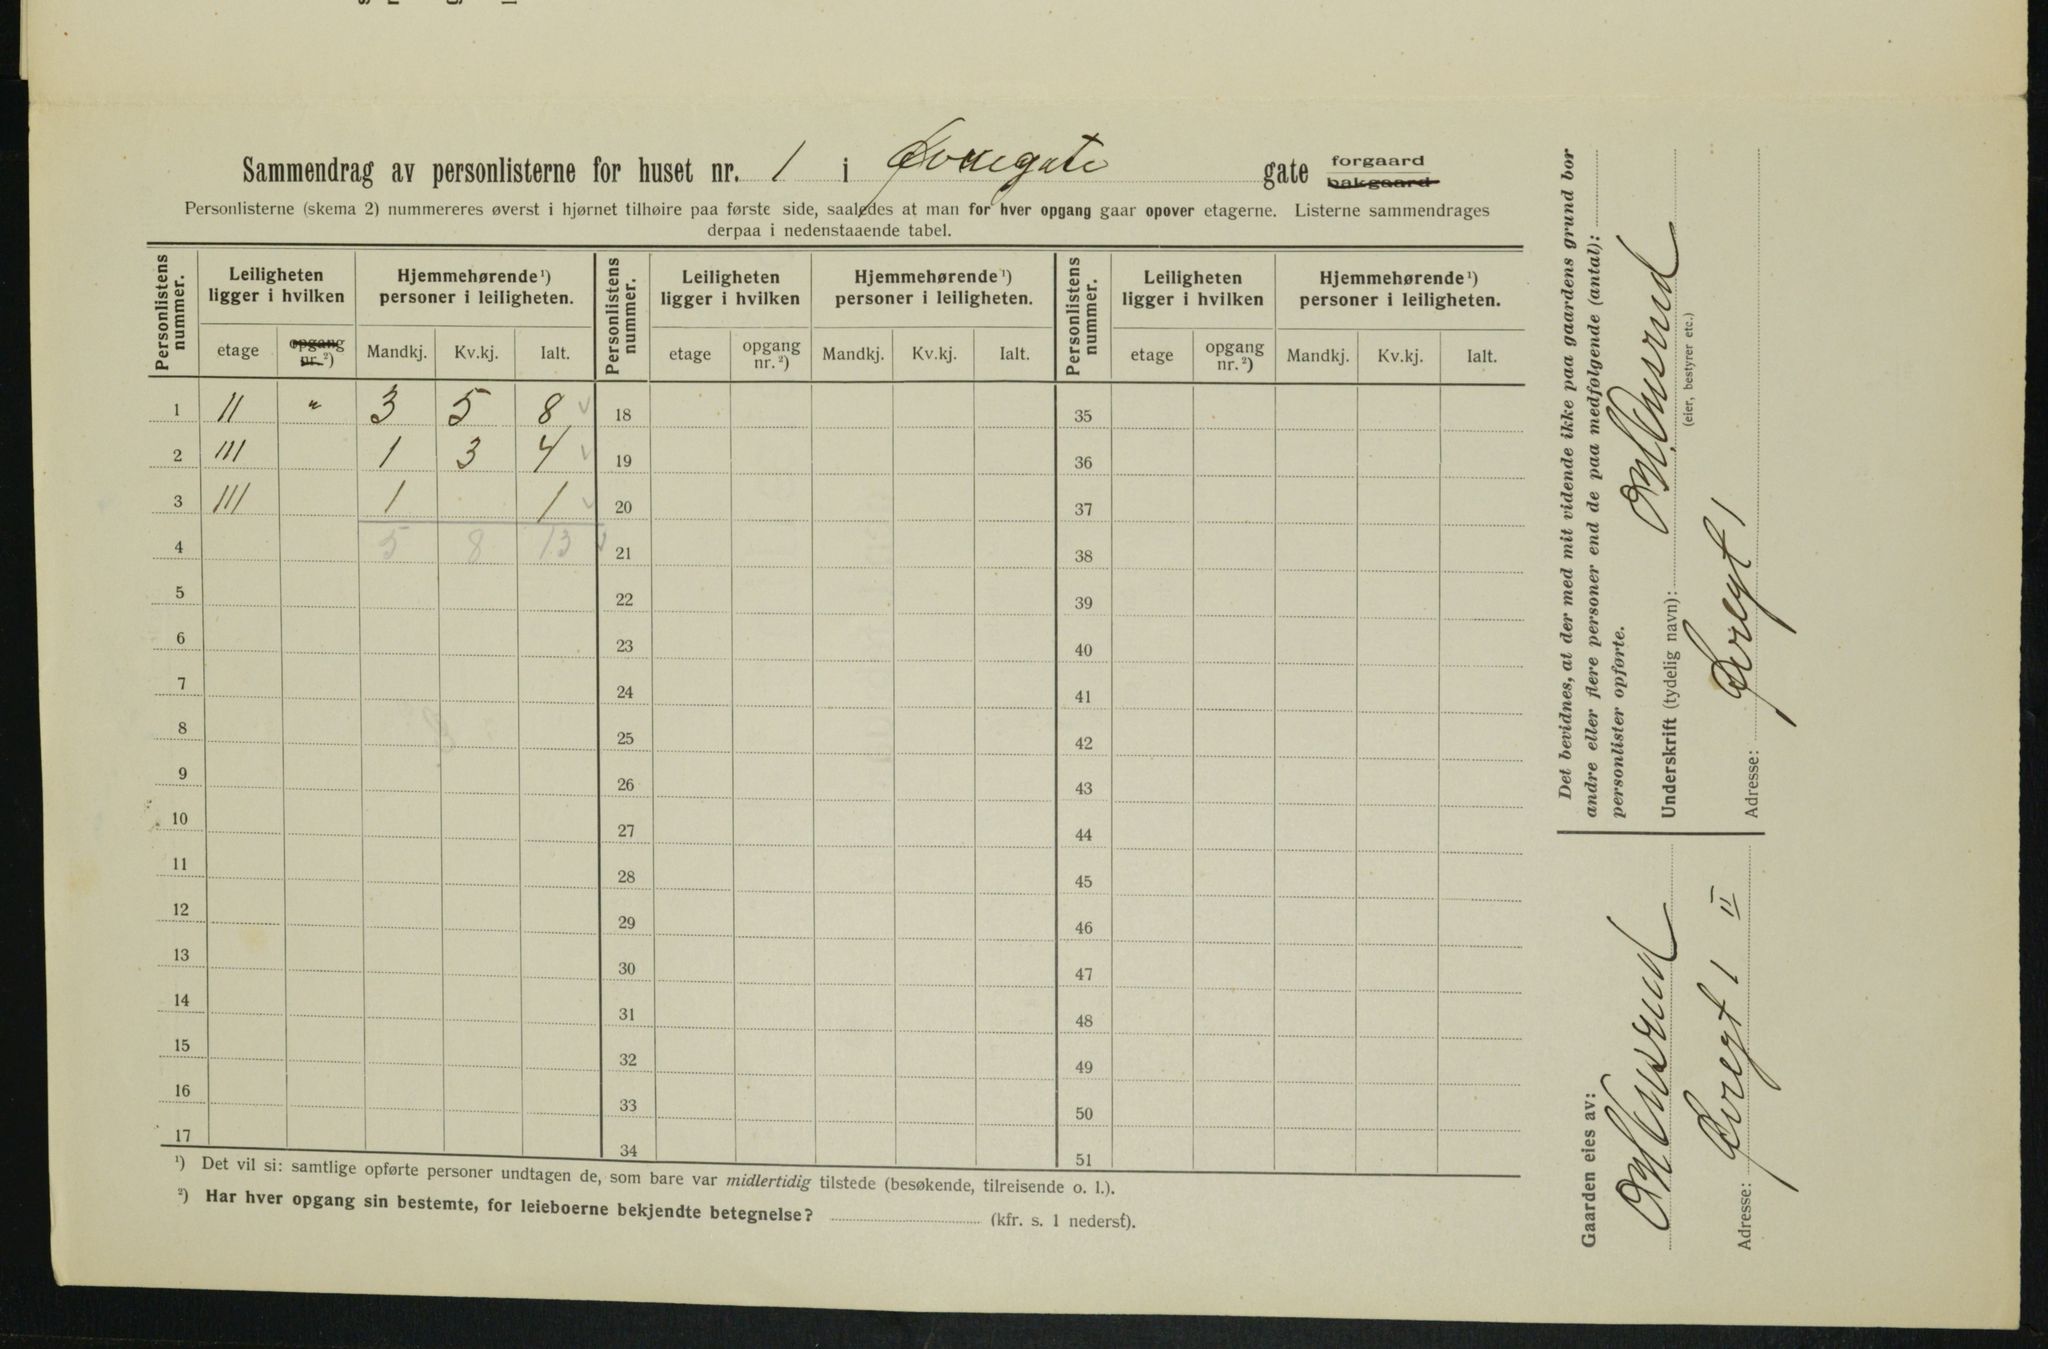 Sammendrag av personlisterne for huset nr. 1 i Øvregate gate forgaard bakgaard
Personlisterne (skema 2) nummereres øverst i hjørnet tilhøire paa første side, saaledes at man for hver opgang gaar opover etagerne. Listerne sammendrages
derpaa i nedenstaaende tabel.
Personlistens nummer. Leiligheten ligger i hvilken Hjemmehørende¹) personer i leiligheten. Personlistens nummer. Leiligheten ligger i hvilken Hjemmehørende¹) personer i leiligheten. Personlistens nummer. Leiligheten ligger i hvilken Hjemmehørende¹) personer i leiligheten.
etage opgang nr.²) Mandkj. Kv.kj. Ialt. etage opgang nr.²) Mandkj. Kv.kj. Ialt. etage opgang nr.²) Mandkj. Kv.kj. Ialt.
1 II " 3 5 8 18 35
2 III 1 3 4 19 36
3 III 1 1 20 37
4 5 8 13 21 38
5 22 39
6 23 40
7 24 41
8 25 42
9 26 43
10 27 44
11 28 45
12 29 46
13 30 47
14 31 48
15 32 49
16 33 50
17 34 51
¹) Det vil si: samtlige opførte personer undtagen de, som bare var midlertidig tilstede (besøkende, tilreisende o. l.).
²) Har hver opgang sin bestemte, for leieboerne bekjendte betegnelse? (kfr. s. 1 nederst).
Det bevidnes, at der med mit vidende ikke paa gaardens grund bor
andre eller flere personer end de paa medfølgende (antal):
personlister opførte.
Underskrift (tydelig navn):
(eier, bestyrer etc.)
Adresse: Øvregt 1
Gaarden eies av:
Adresse: Øvregt 1 II